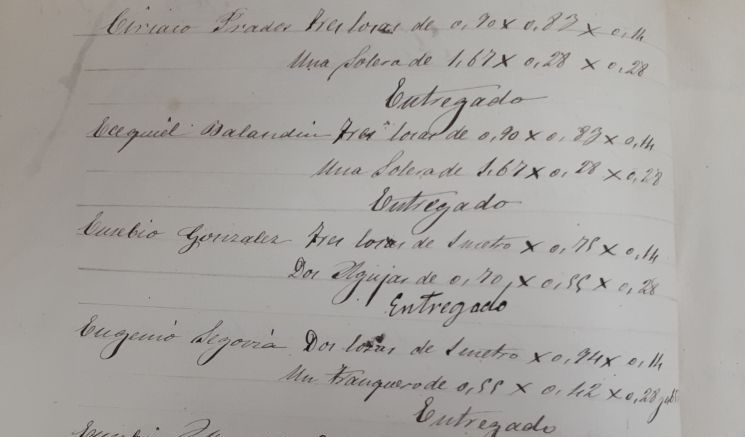 Ciriaco Prados Tres losas de 0,90 x 0,83 x 0,14
Una Solera de 1,67 x 0,28 x 0,28
Entregado
Ecequiel Balandin Tres losas de 0,90 x 0,83 x 0,14
Una Solera de 1,67 x 0,28 x 0,28
Entregado
Eusebio Gonzalez Tres losas de 1 metro x 0,75 x 0,14
Dos Agujas de 0,70 x 0,55 x 0,28
Entregado
Eugenio Segovia Dos losas de 1 metro x 0,94 x 0,14
Un tranquero de 0,55 x 0,42 x 0,28
Entregado